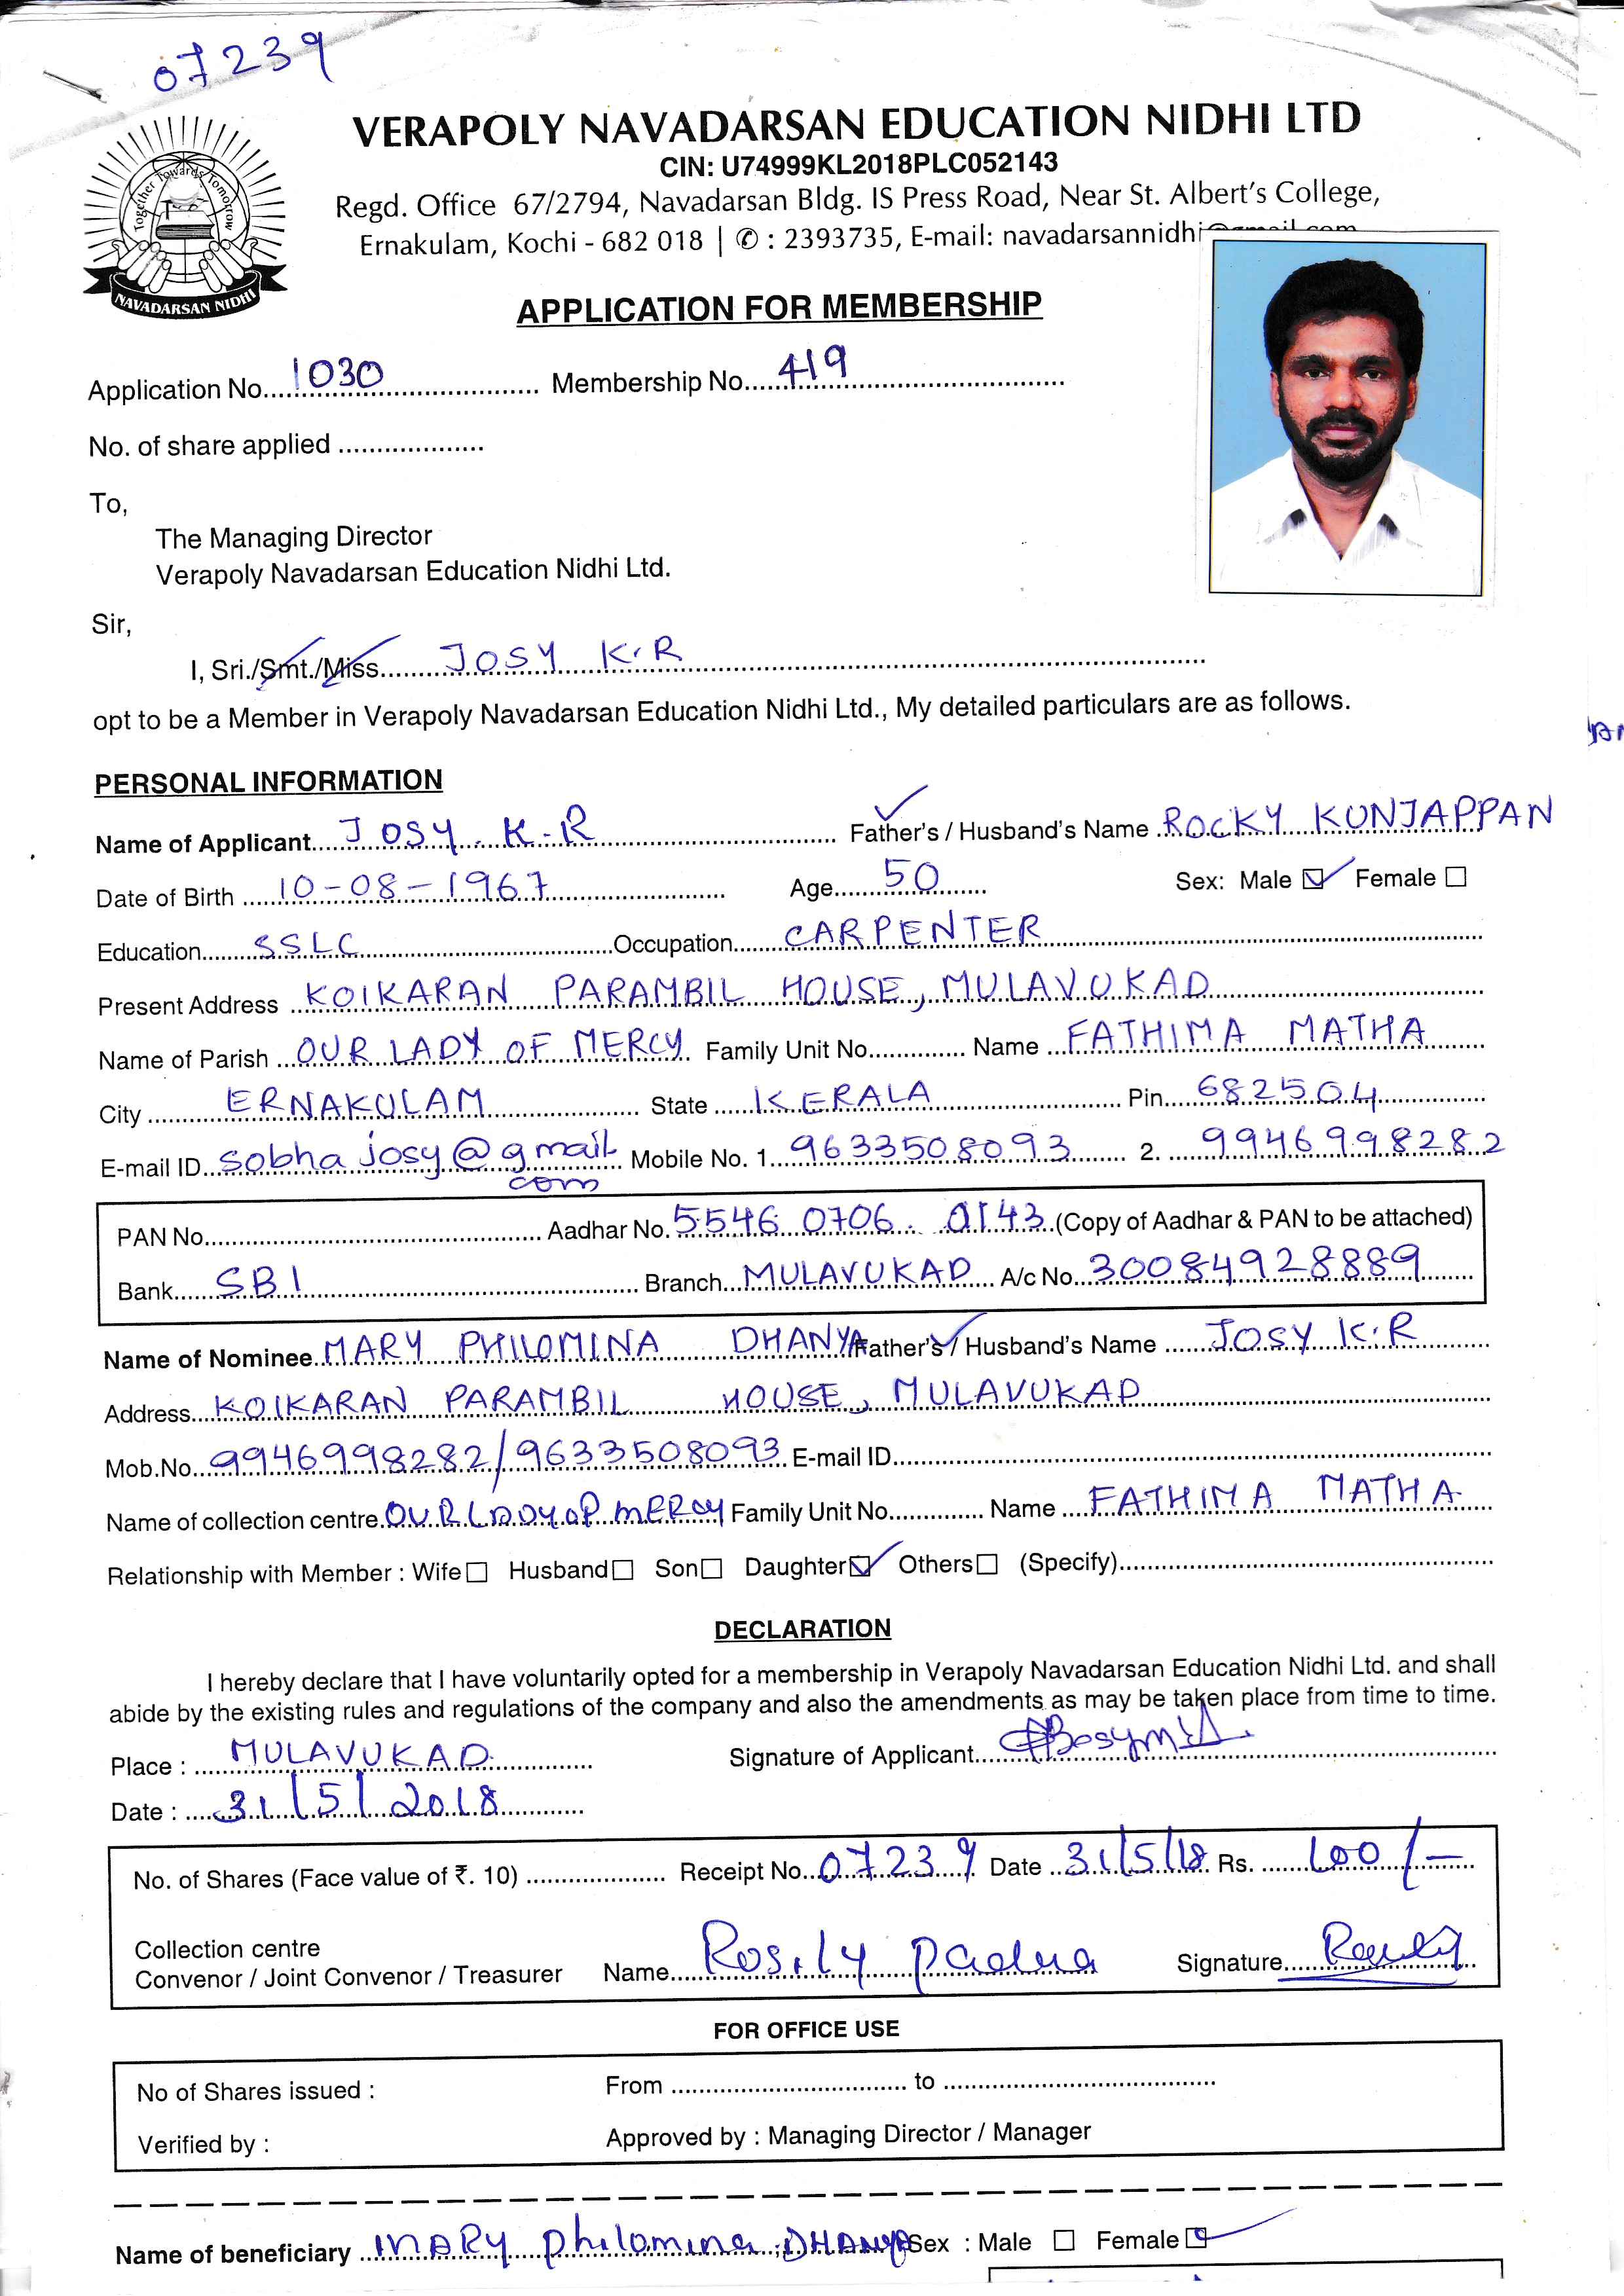 07239
VERAPOLY NAVADARSAN EDUCATION NIDHI LTD
CIN: U74999KL2018PLC052143
Regd. Office 67/2794, Navadarsan Bldg. IS Press Road, Near St. Albert's College,
Ernakulam, Kochi - 682 018 | ✆ : 2393735, E-mail: navadarsannidhi@gmail.com
Together Towards Tomorrow
NAVADARSAN NIDHI
APPLICATION FOR MEMBERSHIP
Application No. 1030 Membership No. 419
No. of share applied
To,
The Managing Director
Verapoly Navadarsan Education Nidhi Ltd.
Sir,
I, Sri./Smt./Miss. JOSY K.R
opt to be a Member in Verapoly Navadarsan Education Nidhi Ltd., My detailed particulars are as follows.
PERSONAL INFORMATION
Name of Applicant JOSY. K.R Father's / Husband's Name ROCKY KUNJAPPAN
Date of Birth 10-08-1967 Age 50 Sex: Male ☑ Female ☐
Education SSLC Occupation CARPENTER
Present Address KOIKARAN PARAMBIL HOUSE, MULAVUKAD
Name of Parish OUR LADY OF MERCY Family Unit No. Name FATHIMA MATHA
City ERNAKULAM State KERALA Pin 682504
E-mail ID sobhajosy@gmail Mobile No. 1. 9633508093 2. 9946998282
com
PAN No. Aadhar No. 5546 0706 0143 (Copy of Aadhar & PAN to be attached)
Bank SBI Branch MULAVUKAD A/c No. 30084928889
Name of Nominee MARY PHILOMINA DHANYA Father's / Husband's Name JOSY K.R
Address KOIKARAN PARAMBIL HOUSE, MULAVUKAD
Mob.No. 9946998282/9633508093 E-mail ID
Name of collection centre OUR LADY OF MERCY Family Unit No. Name FATHIMA MATHA
Relationship with Member : Wife ☐ Husband ☐ Son ☐ Daughter ☑ Others ☐ (Specify)
DECLARATION
I hereby declare that I have voluntarily opted for a membership in Verapoly Navadarsan Education Nidhi Ltd. and shall
abide by the existing rules and regulations of the company and also the amendments as may be taken place from time to time.
Place : MULAVUKAD Signature of Applicant
Date : 31/5/2018
No. of Shares (Face value of ₹. 10) Receipt No. 07239 Date 31/5/18 Rs. 100/-
Collection centre
Convenor / Joint Convenor / Treasurer Name Rosily Padua Signature
FOR OFFICE USE
No of Shares issued : From to
Verified by : Approved by : Managing Director / Manager
Name of beneficiary MARY Philomina DHANYA Sex : Male ☐ Female ☑